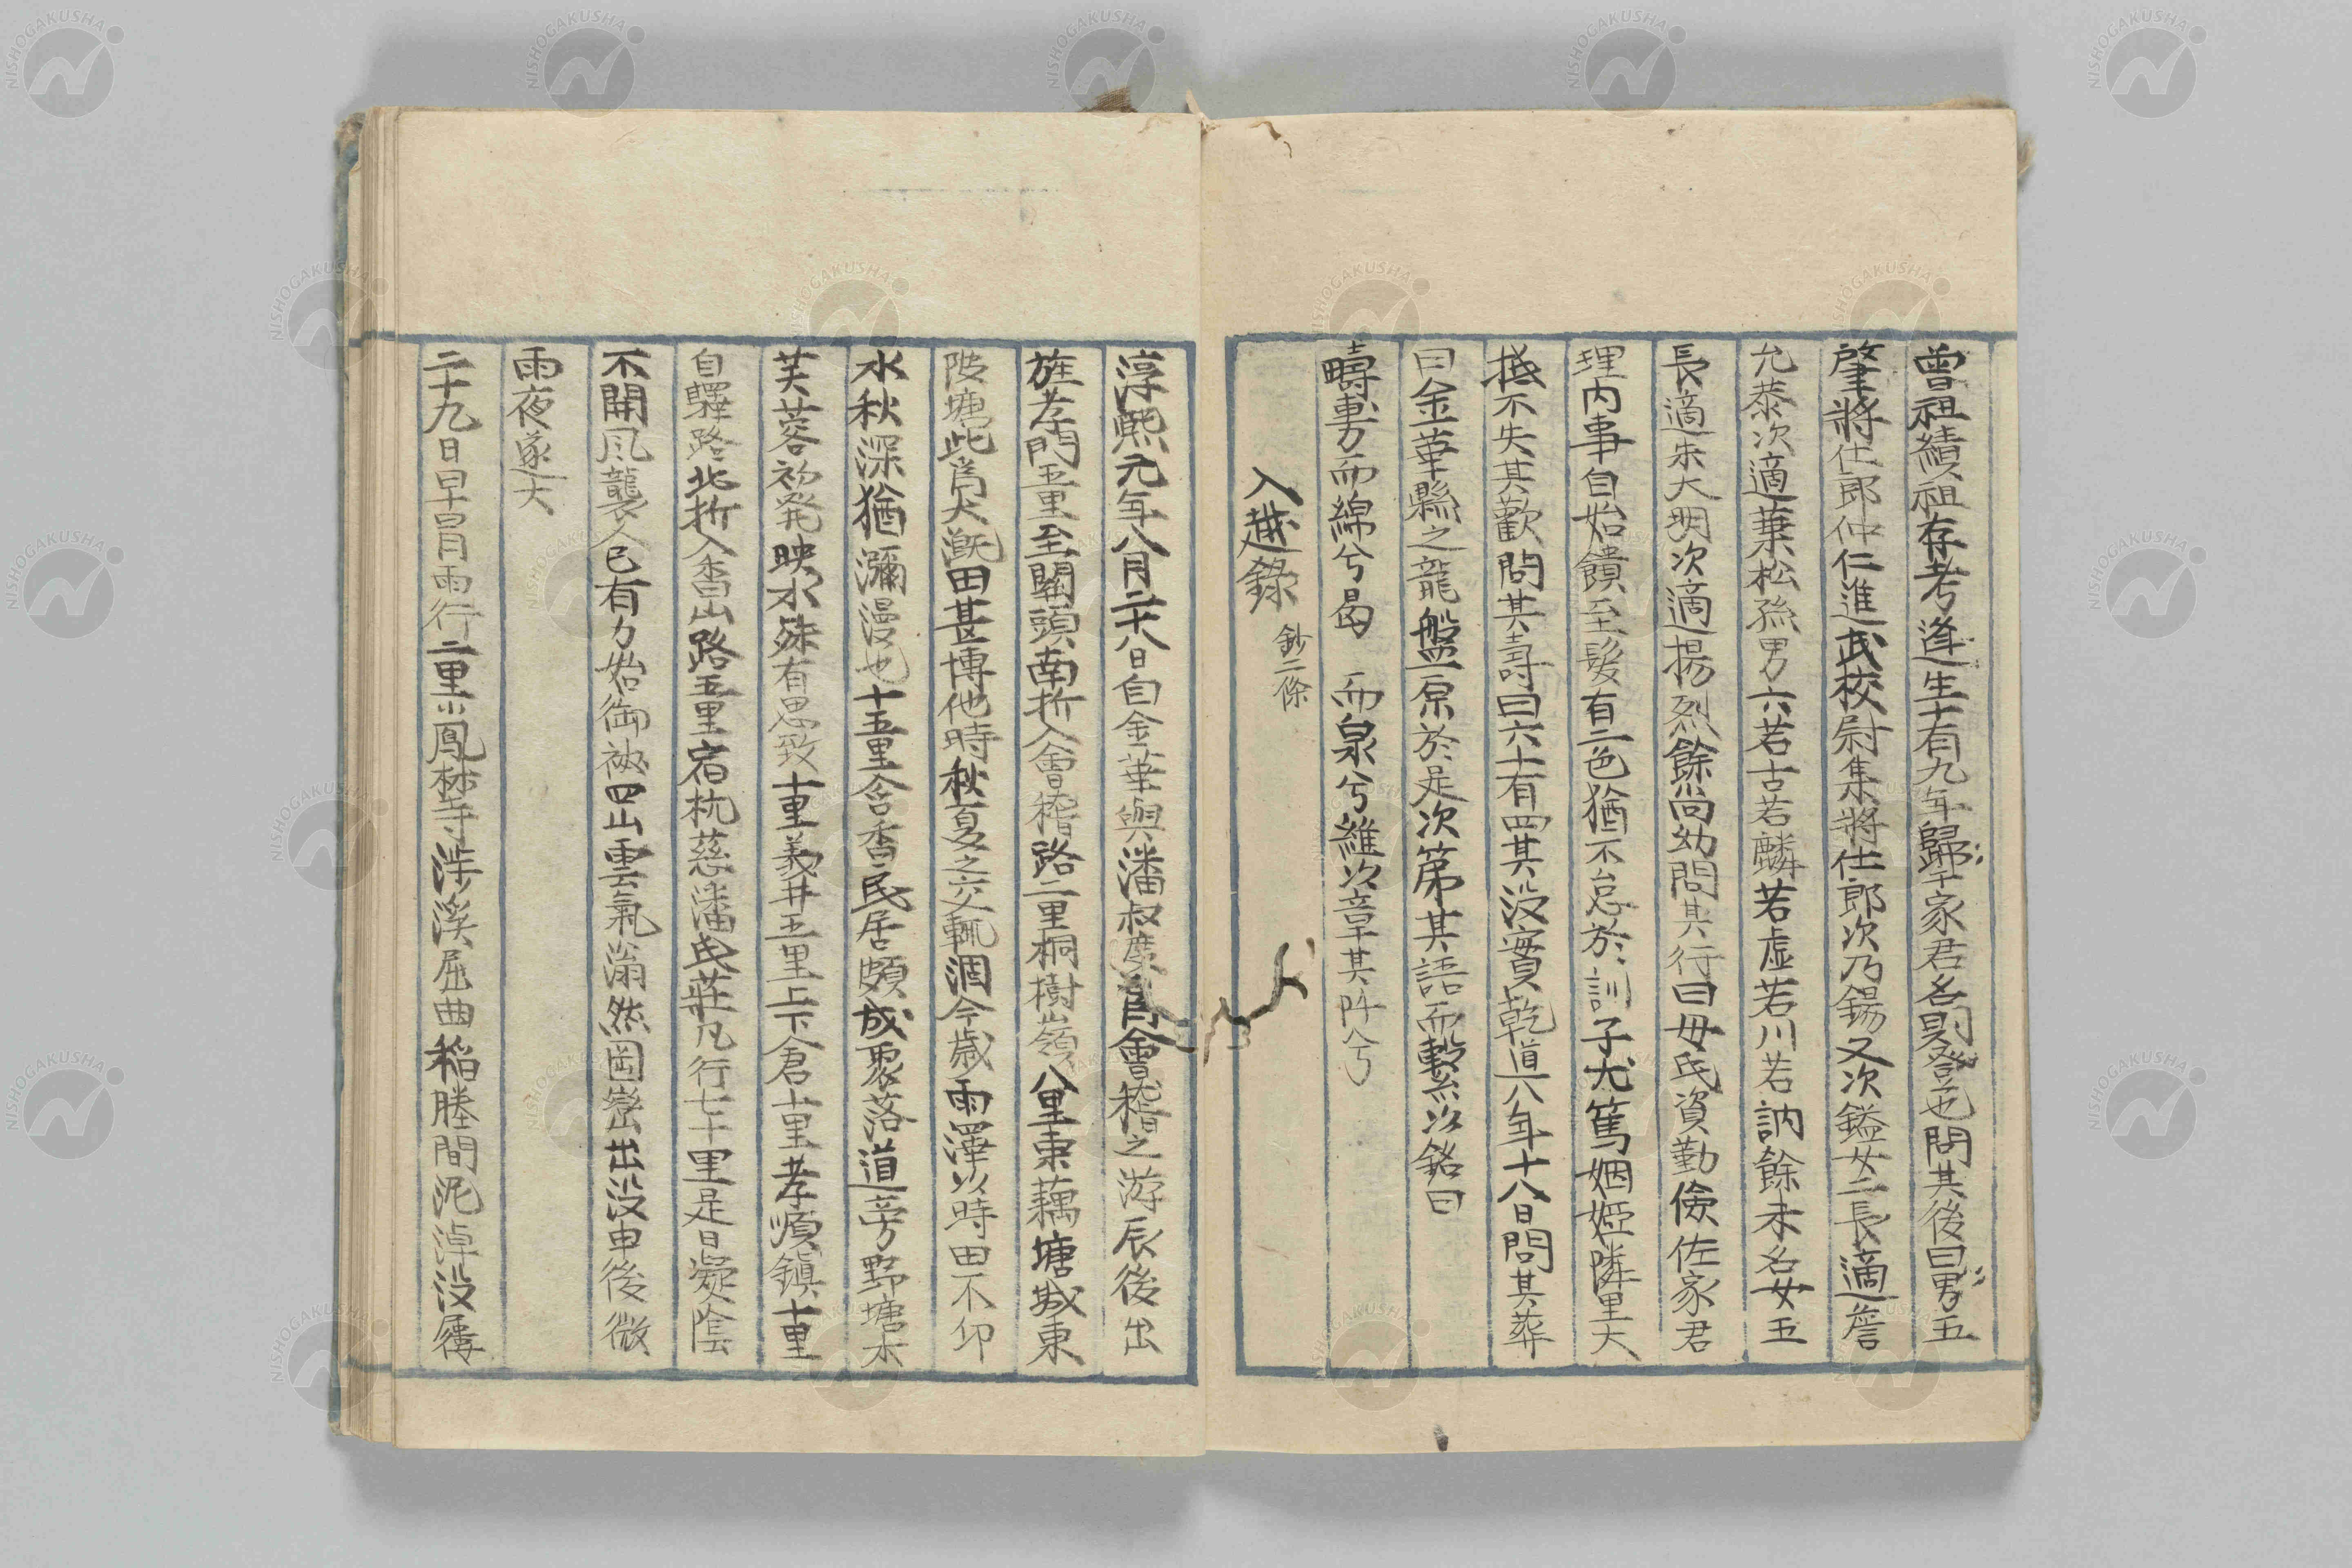 曾祖績祖存考逢生十有九年歸于家君名則登也問其後曰男五
肇將仕郎仲仁進武校尉集將仕郎次乃錫又次鎰女二長適詹
允恭次適葉松孫男六若古若麟若虛若川若訥餘未名女五
長適朱大明次適楊烈餘尚幼問其行曰毋氏資勤儉佐家君
理內事自始饋至髮有二色猶不怠於訓子尤篤姻婭隣里大
抵不失其歡問其壽曰六十有四其沒實乾道八年十八日問其葬
曰金華縣之龍盤原於是次第其語而繫以銘曰
疇專而綿兮曷 而泉兮維次章其阡兮
入越錄 鈔二條
淳熙元年八月二十八日自金華與潘叔度為會稽之游辰後出
旌孝門五里至關頭南折入會稽路二里桐樹嶺八里東藕塘城東
陂塘此為大漑田甚博他時秋夏之交輒涸今歲雨澤以時田不仰
水秋深猶瀰漫也十五里含香民居頗成聚落道旁野塘木
芙蓉初發映水殊有思致十里義井五里上下倉十里孝順鎮十里
自驛路北折入香山路五里宿杭慈潘氏莊凡行七十里是日凝陰
不開風襲人已有力始御袂四山雲氣滃然岡巒出沒申後微
雨夜遂大
二十九日早冒雨行二里小鳳林寺涉溪屈曲稻塍間泥淖沒屨